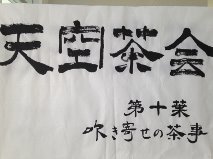 天空茶会
第十葉
吹き寄せの茶事